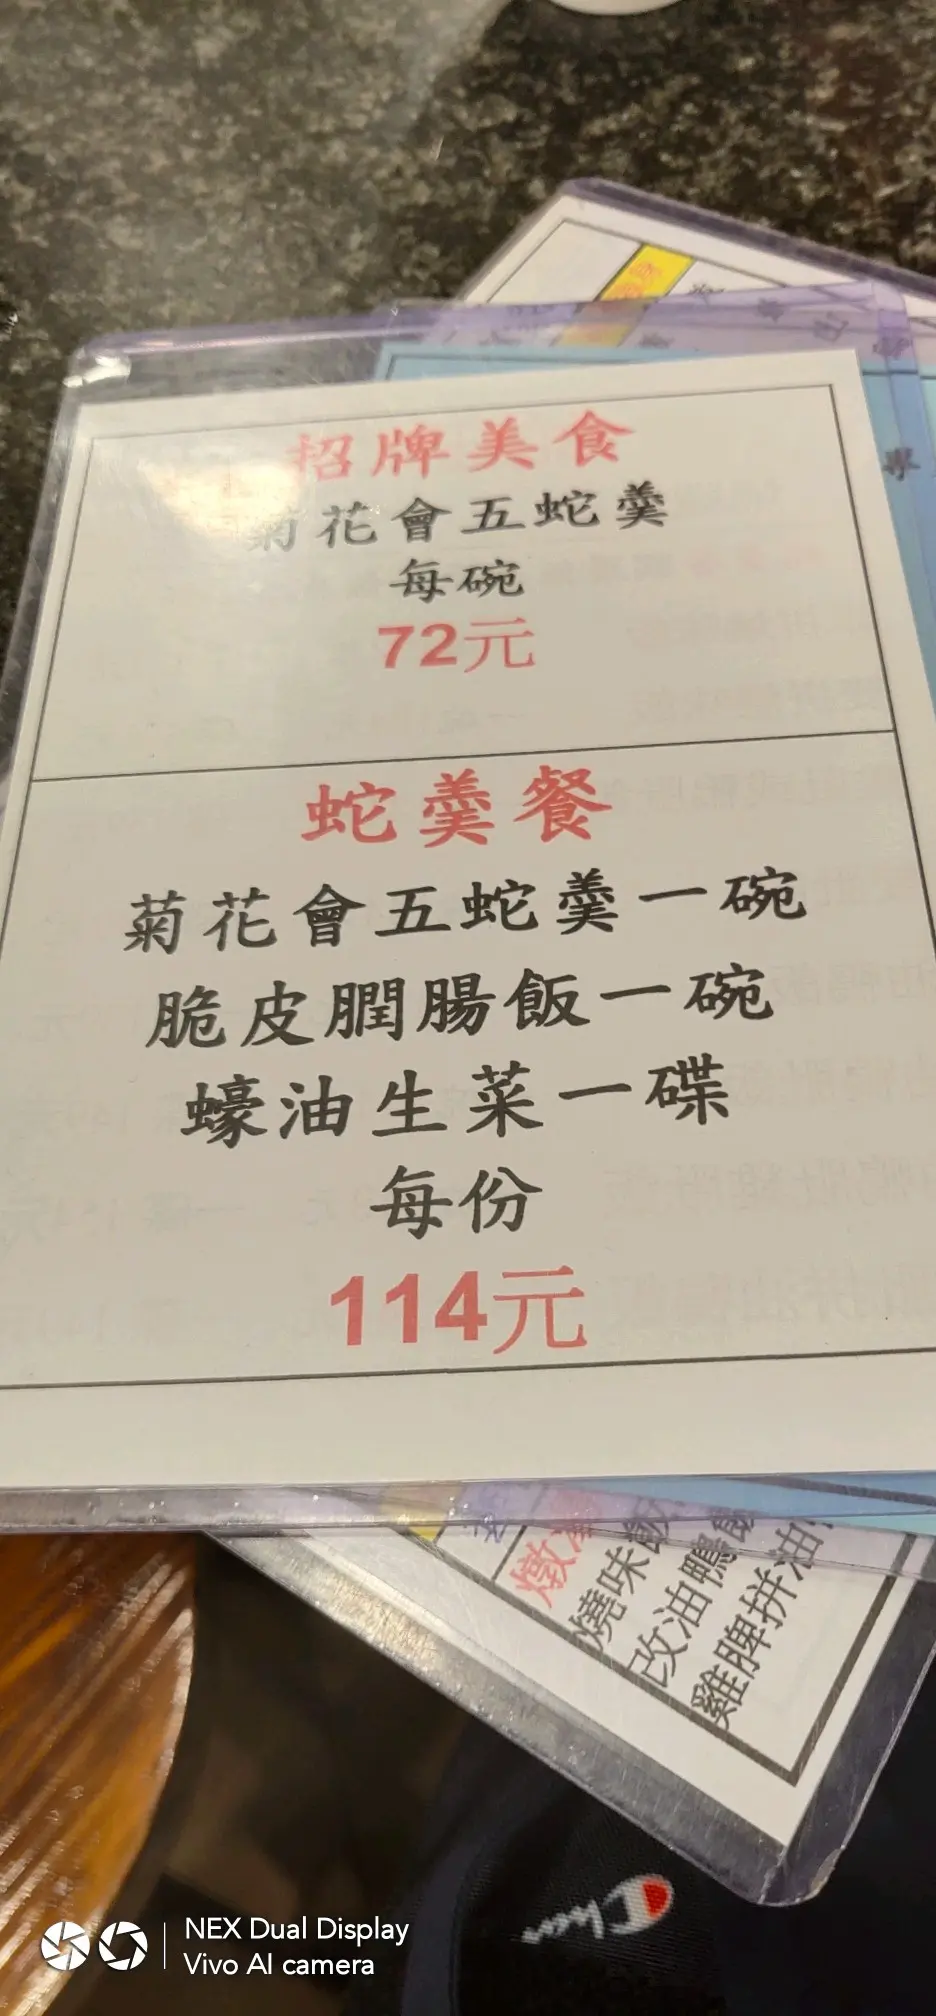 招牌美食
菊花會五蛇羹
每碗
72元
蛇羹餐
菊花會五蛇羹一碗
脆皮膶腸飯一碗
蠔油生菜一碟
每份
114元
燉
燒味飯
改油鴨飯
雞髀拼油
學
NEX Dual Display
Vivo AI camera